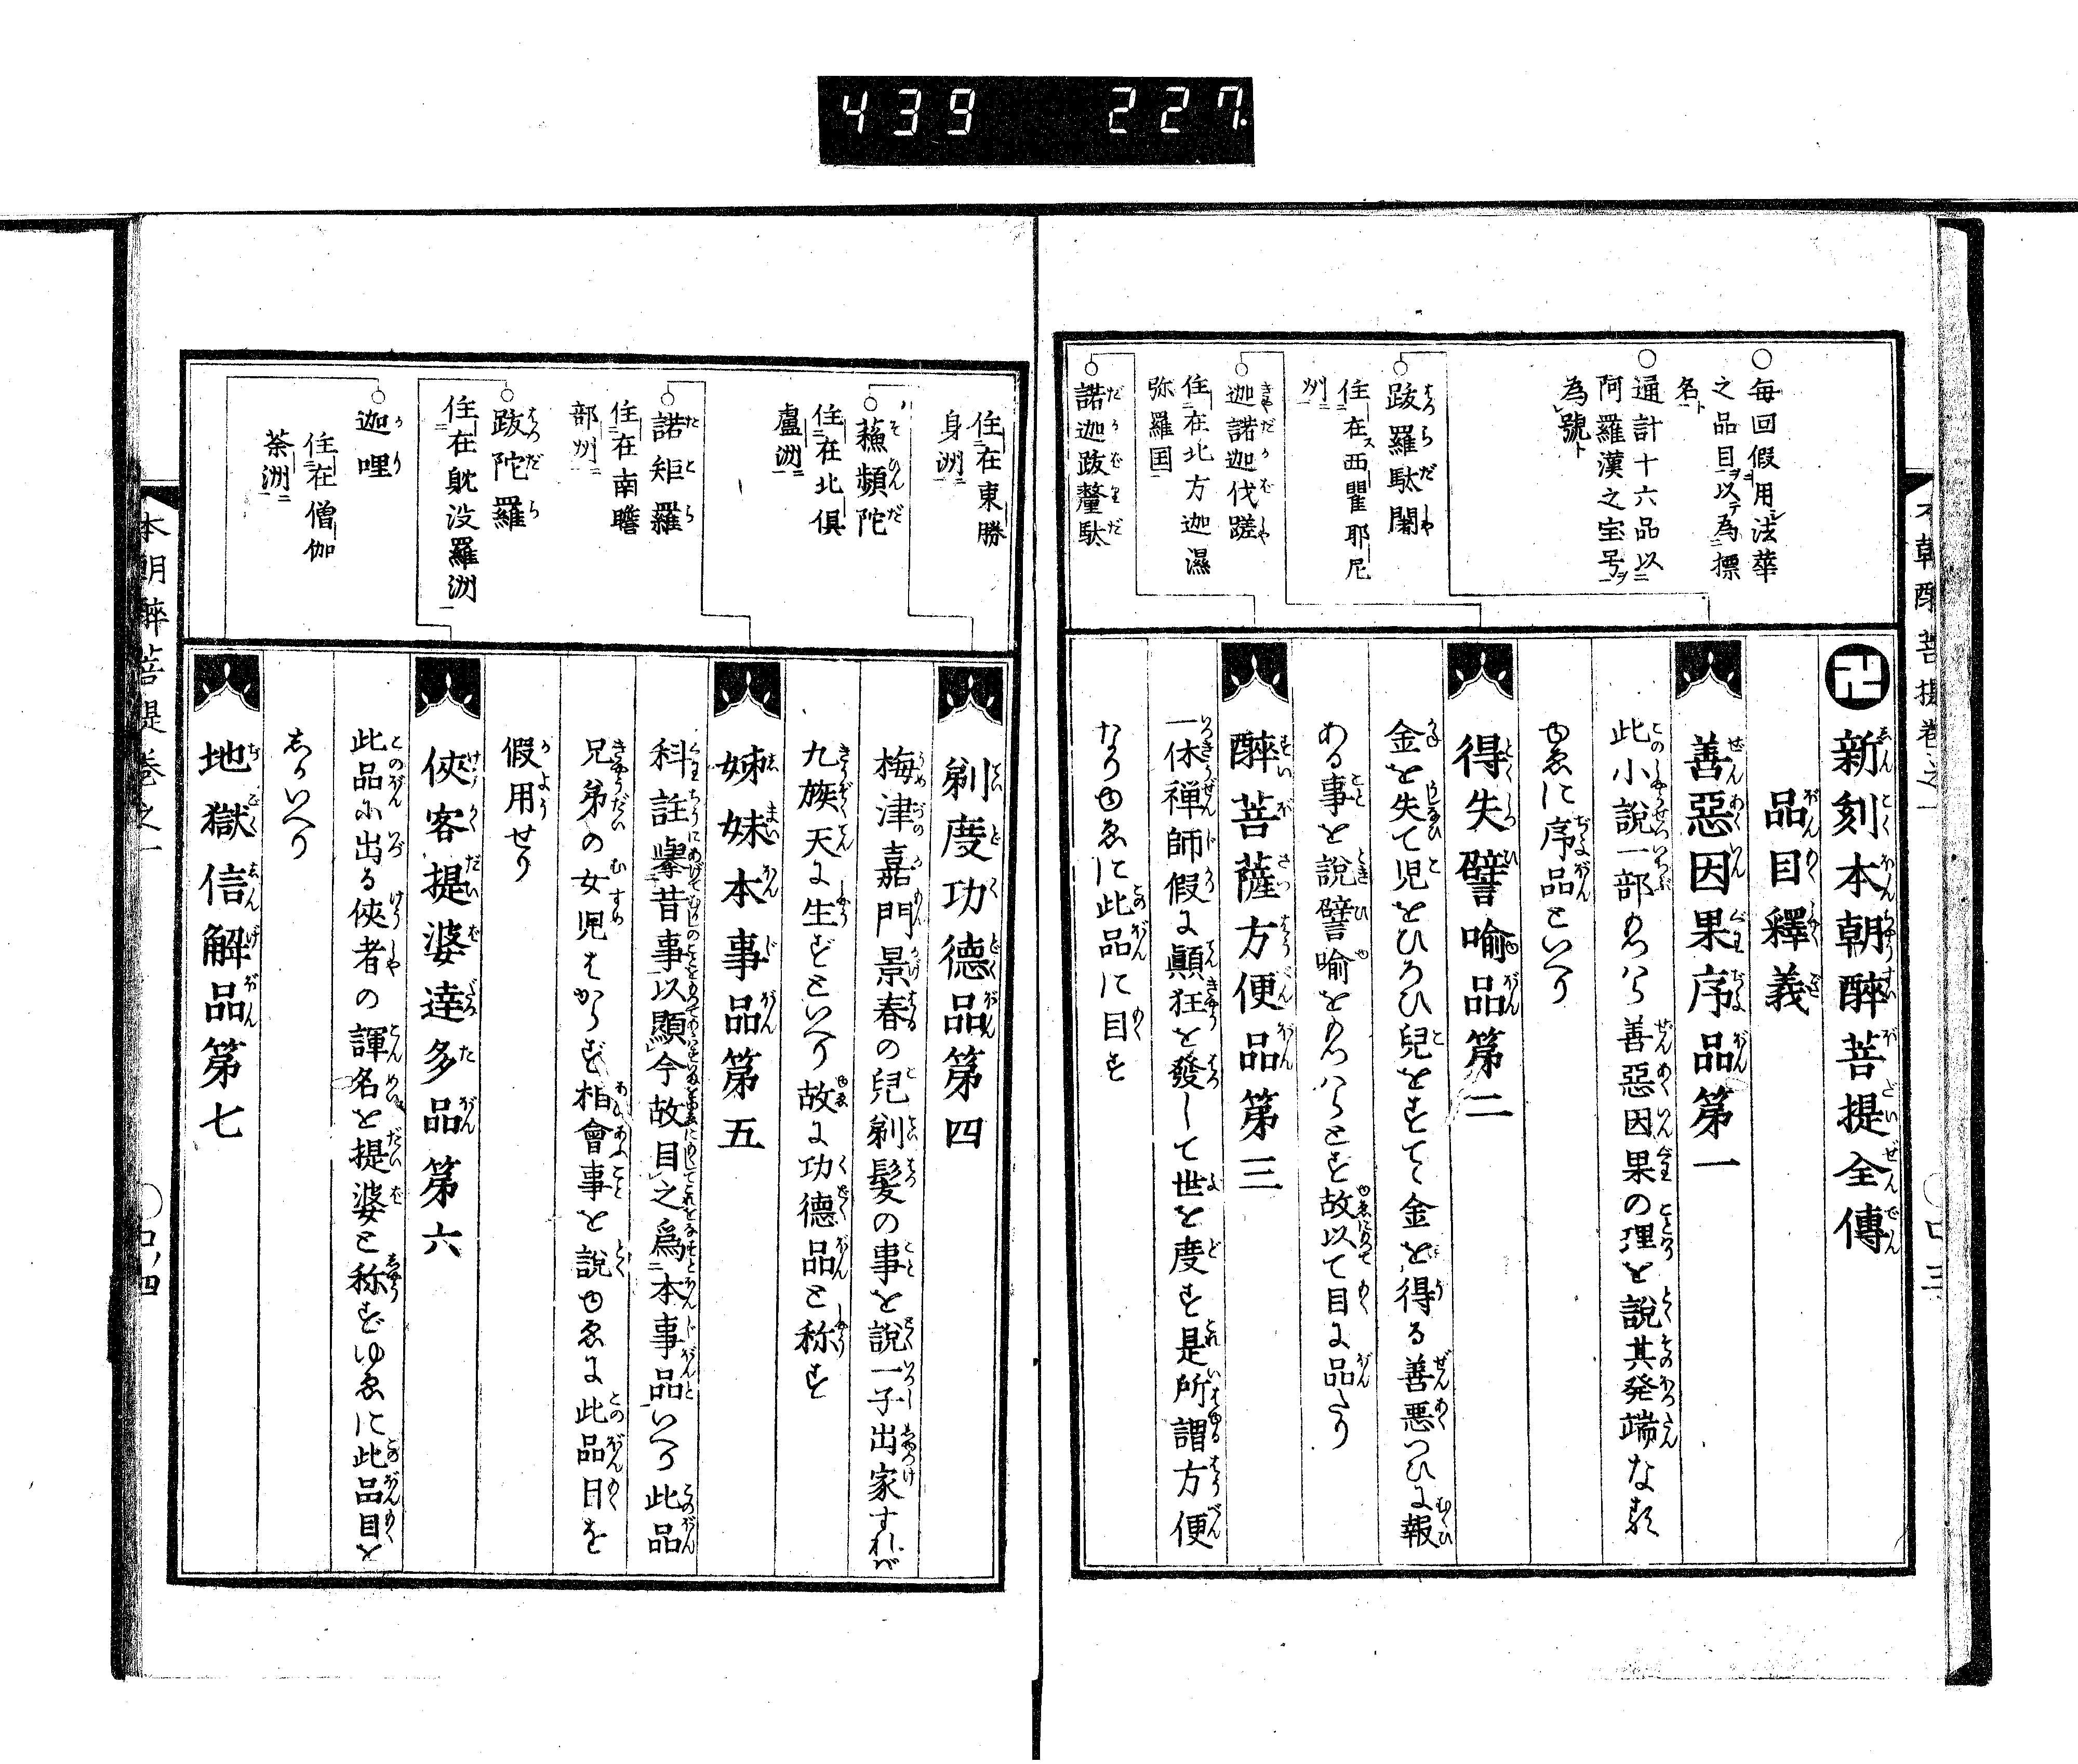 439 227
○毎回假用法華
之品目ヲ以テ為標
名ト
○通計十六品以
阿羅漢之宝号ヲ
為號ト
跋羅駄闍
住在西瞿耶尼
州
迦諾迦伐蹉
住在北方迦濕
弥羅国
諾迦跋釐駄
新刻本朝醉菩提全傳
品目釋義
善惡因果序品第一
此小説一部あらはら善惡因果の理を説其発端なる
ゆゑに序品といへり
得失譬喩品第二
金を失て児をひろひ兒をすてゝ金を得る善悪つひに報
ある事を説譬喩をあらはらとす故以て目に品たり
醉菩薩方便品第三
一休禅師假に顛狂を發して世を度す是所謂方便
なりゆゑに此品に目す
本朝醉菩提巻之一
口ノ三
住在東勝
身洲
蘓頻陀
住在北俱
盧洲
諾矩羅
住在南瞻
部州
跋陀羅
住在躭没羅洲
迦哩
住在僧伽
荼洲
剃度功德品第四
梅津嘉門景春の兒剃髪の事を説一子出家すれば
九族天に生ずといへり故に功德品と称す
姉妹本事品第五
科註擧昔事以顯今故目之爲本事品いへり此品
兄弟の女児はからず相會事を説ゆゑに此品目を
假用せり
俠客提婆達多品第六
此品に出る俠者の諢名を提婆と称すゆゑに此品目を
しかいへり
地獄信解品第七
本朝醉菩提巻之一
口ノ四